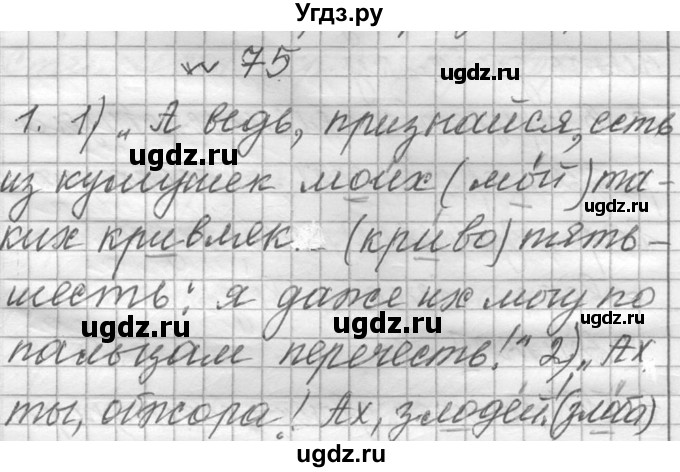 Угдз.ру
№ 75
ugdz.ru
1. 1) „А ведь, признайся, есть
ugdz.ru
из кумушек моих (мой) та-
ugdz.ru
ких кривляк... (криво) пять-
шесть: я даже их могу по
ugdz.ru ugdz.ru ugdz.ru
пальцам перечесть!" 2) „Ах
ты, обжора! Ах, злодей! (злоба)
ugdz.ru ugdz.ru